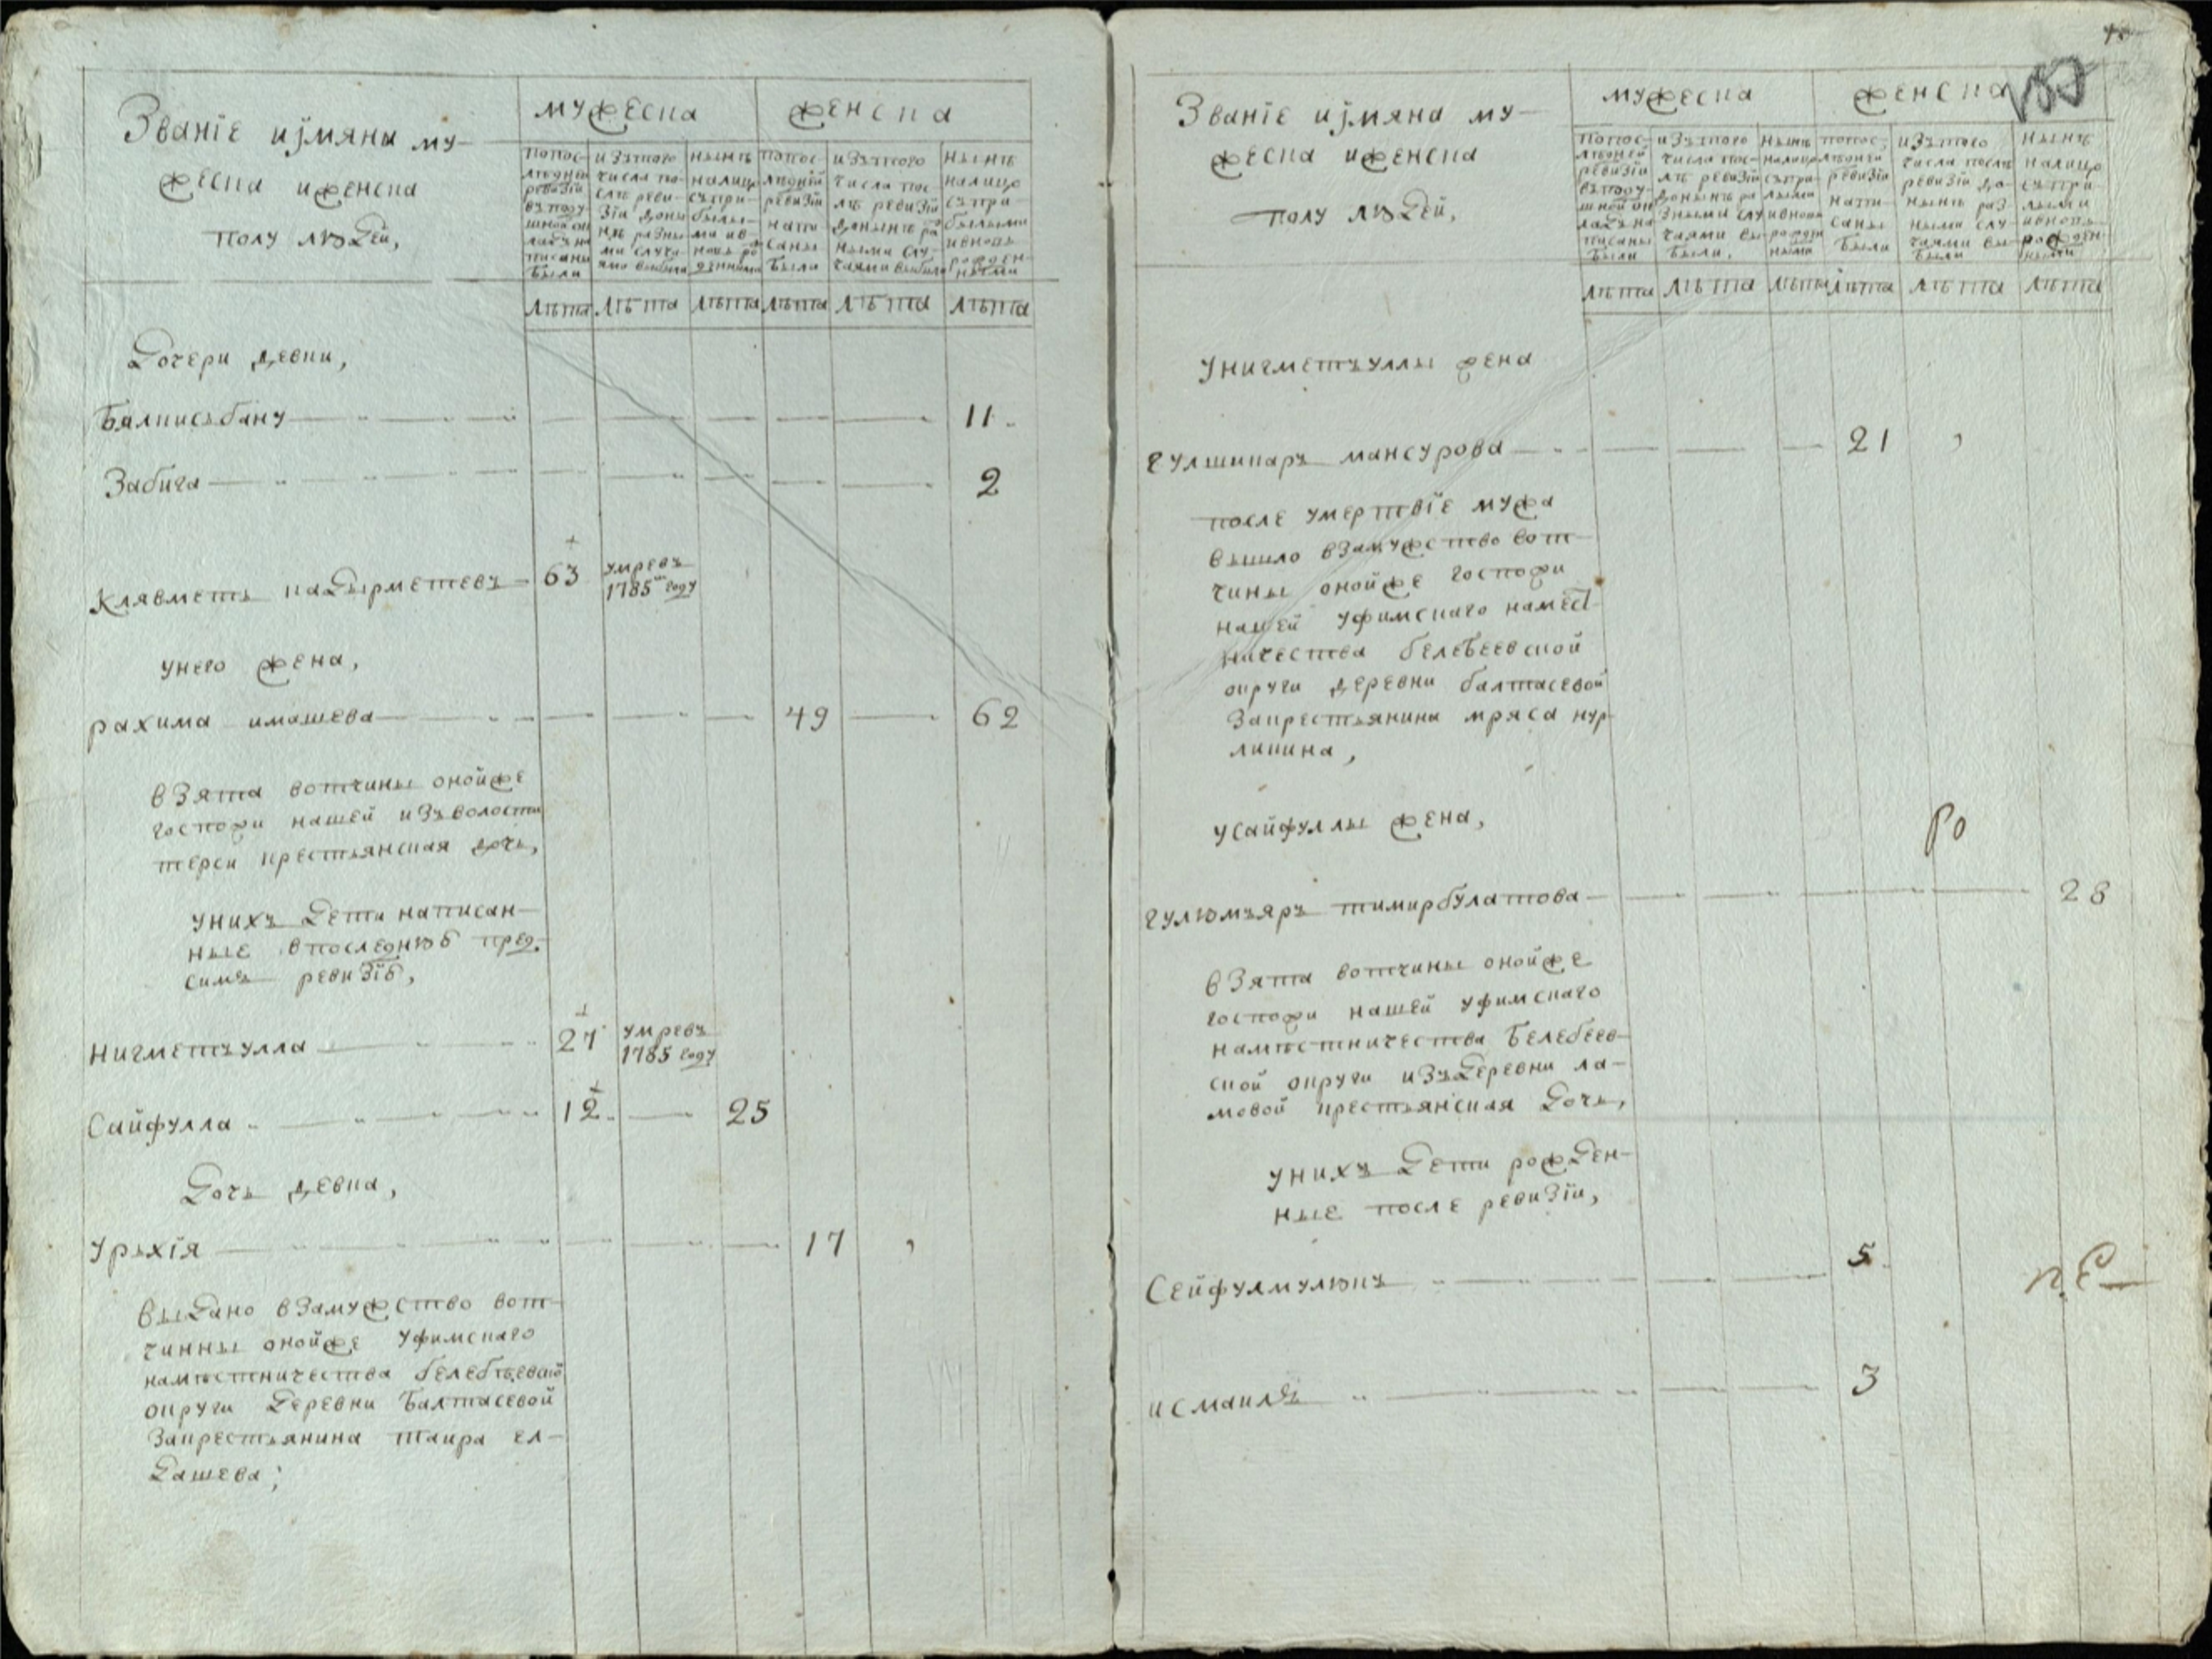 Званїе иjмяна му-
жеска иженска
полу людей,
мужеска
женска
попос-
лѣдней
ревизїи
въподу-
шной ок
ладъ на
писаны
были
изътого
числа по-
слѣ реви-
зїи доны
нѣ разны
ми случа
ями выбыло
нынѣ
налицо
съпри-
былы-
ми ив-
новь ро
жденными
попос-
лѣдней
ревизїи
напи-
саны
были
изътого
числа пос-
лѣ ревизїи
донынѣ ра
зными слу-
чаями выбыло
нынѣ
налицо
съпри-
былыми
ивновь
рожден-
ными
лѣта лѣта лѣта лѣта лѣта лѣта
Дочери девки,
Балкисьбану 11
Забига 2
Клявметь кадырметевъ 63 умревъ
1785 году
унего жена,
рахима имашева 49 62
взята вотчины онойже
госпожи нашей изъволости
терси крестьянская дочь,
унихъ дети написан-
ные впоследнюю пред
симъ ревизїю,
Нигметъулла 27 умревъ
1785 году
Сайфулла 12 25
Дочь девка,
Урхїя 17
выдано взамужство вот-
чинны онойже уфимскаго
намѣстничества белебѣевской
округи деревни Балтасевой
закрестьянина таира ел-
дашева;
Званїе иjмяна му-
жеска иженска
полу людей,
мужеска
женска
попос-
лѣдней
ревизїи
въподу-
шной ок
ладъ на
писаны
были
изътого
числа пос-
лѣ ревизїи
донынѣ ра
зными слу
чаями вы-
были,
нынѣ
налицо
съпри-
лыми
ивновь
рожден
ными
попос-
лѣдней
ревизїи
напи-
саны
были
изътого
числа послѣ
ревизїи до-
нынѣ раз
ными слу-
чаями вы-
были
нынѣ
налицо
съпри-
лыми
ивновь
рожден-
ными
лѣта лѣта лѣта лѣта лѣта лѣта
Унигметъуллы жена
гулшикаръ мансурова 21
после умертвїе мужа
вышло взамужство вот-
чины онойже госпожи
нашей уфимскаго намест
ничества белебеевской
округи деревни балтасевой
Закрестьянина мряса нур-
ликина,
усайфуллы жена,
гулюмъяръ тимирбулатова 28
взята вотчины онойже
госпожи нашей уфимскаго
намѣстничества Белебеев-
ской округи изъдеревни ка-
мовой крестьянская дочь,
унихъ дети рожден-
ные после ревизїи,
Сейфулмулюкъ 5
исмаилъ 3